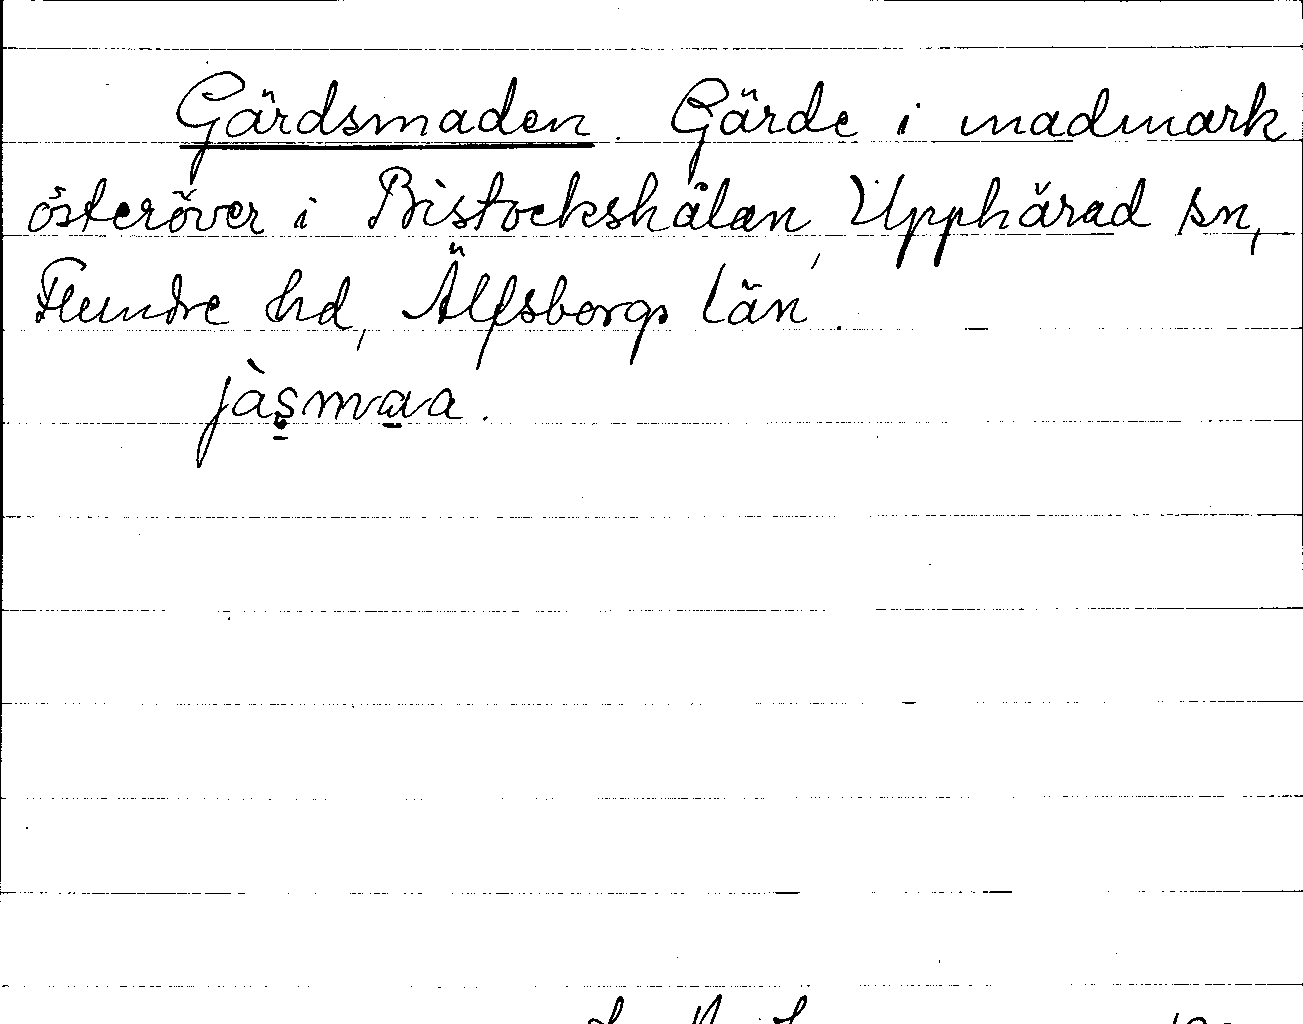 Gärdsmaden. Gärde i madmark
österöver i Bistockshålan, Upphärad sn,
Flundre hd, Älfsborgs län.
jàs̭ma̲a.